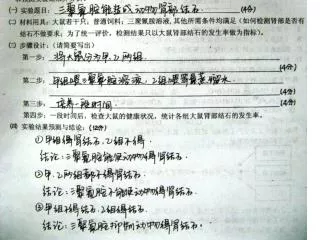 (一) 实验题目: 三聚氰胺能使动物得肾结石 (4分)
(二) 材料用具: 大鼠若干只; 普通饲料; 三聚氰胺溶液, 其他所需条件均满足 (如何检测肾部是否有
结石不做要求; 为了统一评价, 检测结果只以大鼠肾部结石的发生率做为指标)。
(三) 步骤设计: (请简要写出)
第一步: 将大鼠分为甲乙两组 (4分)
第二步: 甲组喂三聚氰胺溶液, 乙组喂等量蒸馏水
(4分)
第三步: 培养一段时间 (4分)
第四步: 一段时间后, 检查大鼠的健康状况, 统计各组大鼠肾部结石的发生率。
(四) 实验结果预测与结论: (12分)
①甲组得肾结石, 乙组不得
结论: 三聚氰胺能使动物得肾结石.
②甲、乙两组都不得肾结石
结论: 三聚氰胺不能使动物得肾结石.
③甲组不得结石, 乙组得结石
结论: 三聚氰胺抑制动物得肾结石.